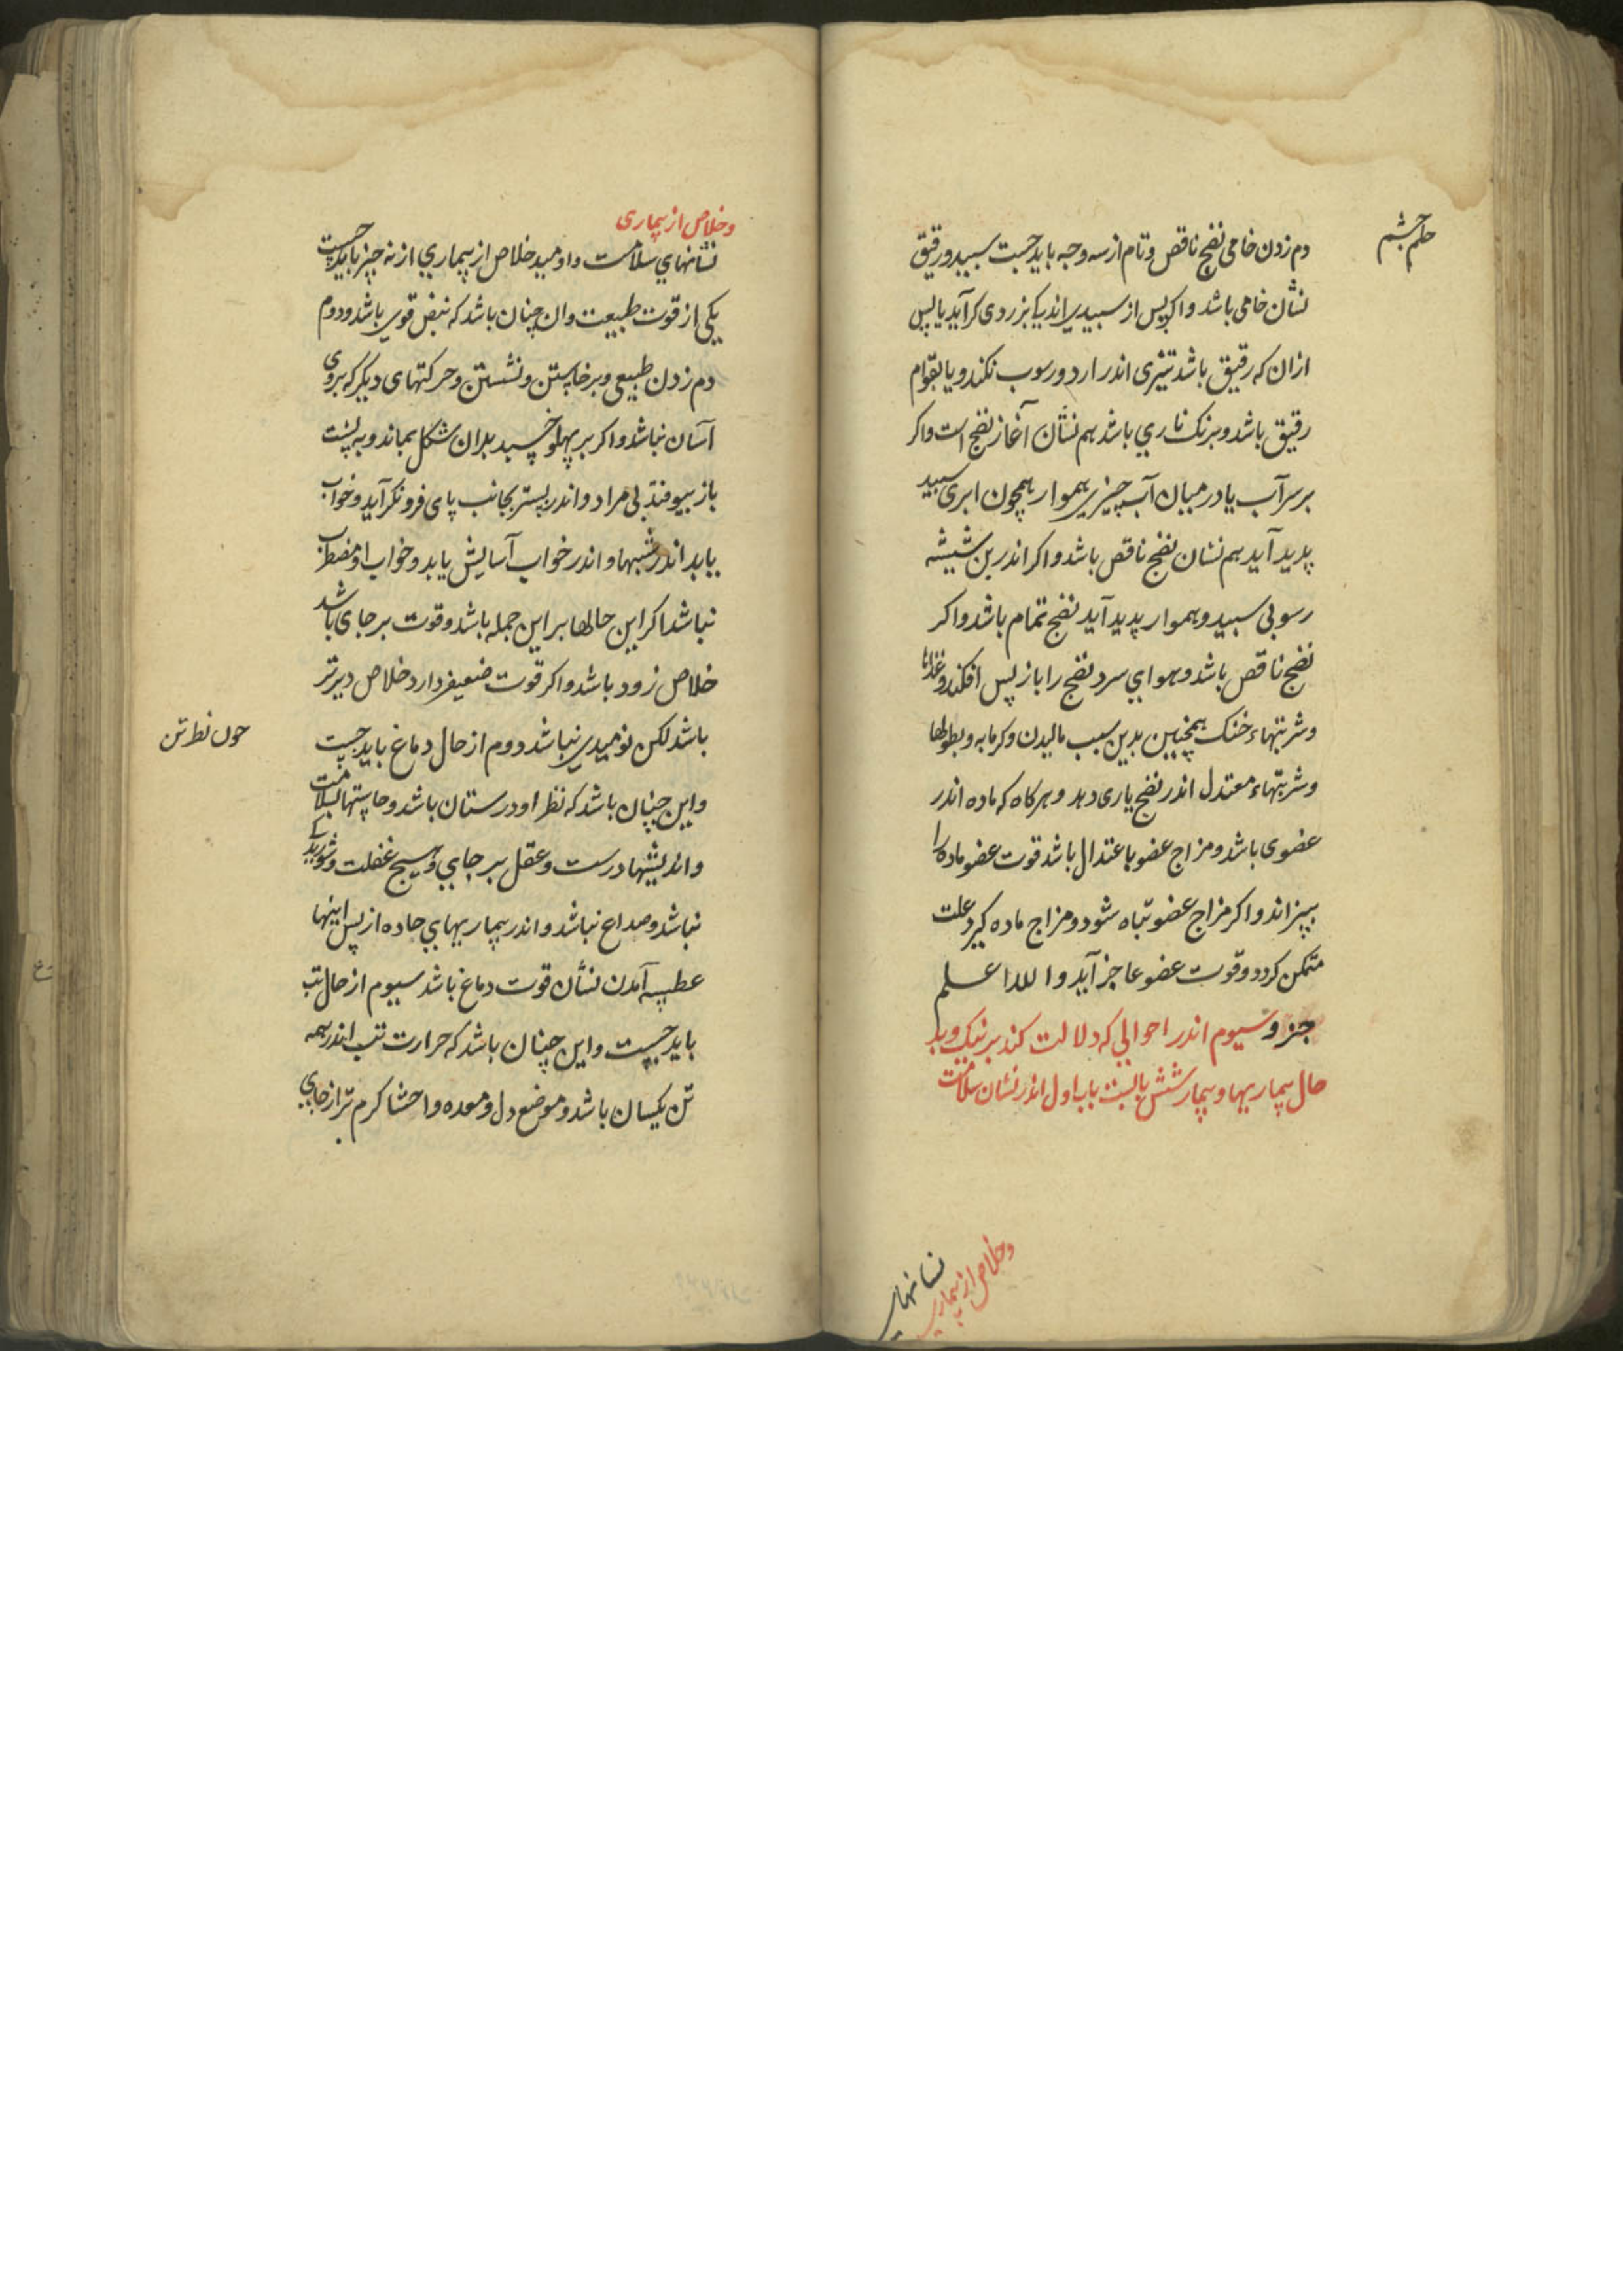 دم زدن خامی نضج ناقص و تام از سه وجه باید جست سپید و رقیق
نشان خامی باشد و اکر پس از سپیدی اندکی بزردی کراید یا پس
ازان که رقیق باشد تیزی اندر ارد و رسوب نکند و یا بقوام
رقیق باشد و برنک ناری باشد هم نشان آغاز نضج است و اکر
بر سر آب یا در میان آب چیزی هموار همچون ابری سپید
پدید آید هم نشان نضج ناقص باشد و اکر اندر بن شیشه
رسوبی سپید و هموار پدید آید نضج تمام باشد و اکر
نضج ناقص باشد و هوای سرد نضج را باز پس افکند و غذاها
و شربتهاء خنک همچنین بدین سبب مالیدن و کرمابه و بطولها
و شربتهاء معتدل اندر نضج یاری دهد و هر کاه که ماده اندر
عضوی باشد و مزاج عضو باعتدال باشد قوت عضو ماده را
بپزاند و اکر مزاج عضو تباه شود و مزاج ماده کیرد علت
متمکن کردد و قوت عضو عاجز آید و الله اعلم
جزو سیوم اندر احوالی که دلالت کند بر نیک و بد
حال بیماریها و بیمار شش بابست باب اول اندر نشان سلامت
و خلاص از بیماری
نشانهای
و خلاص از بیماری
نشانهای سلامت و اومید خلاص از بیماری از نه چیز باید جست
یکی از قوت طبیعت و ان چنان باشد که نبض قوی باشد و دوم
دم زدن طبیعی و برخاستن و نشستن و حرکتهای دیکر که بر وی
آسان نباشد و اکر بر پهلو خسبد بدان شکل بماند و به پشت
باز نیوفتد بی مراد و اندر بستر بجانب پای فرو نکراید و خواب
یابد اندر شبها و اندر خواب آسایش یابد و خواب او مضطرب
نباشد اکر این حالها بر این جمله باشد و قوت بر جای باشد
خلاص زود باشد و اکر قوت ضعیف دارد خلاص دیرتر
باشد لکن نومیدی نباشد دوم از حال دماغ باید جست
و این چنان باشد که نظر او درستان باشد و حاستها بسلامت
و اندیشها درست و عقل بر جای و هیچ غفلت و شوریدکی
نباشد و صداع نباشد و اندر بیماریهای حاده از پس اینها
عطسه آمدن نشان قوت دماغ باشد سیوم از حال تب
باید جست و این چنان باشد که حرارت تب اندر همه
تن یکسان باشد و موضع دل و معده و احشا کرم تر از جای